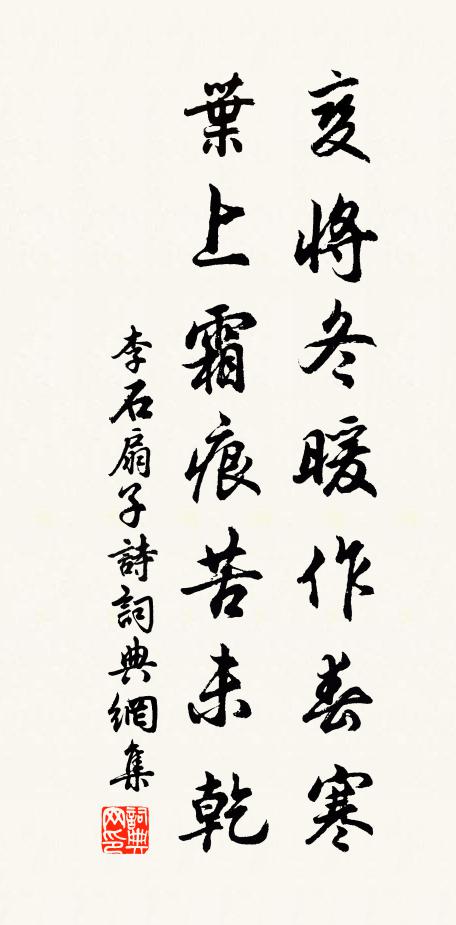 变將冬暖作春寒
葉上霜痕苦未乾
李石扇子詩詞典網集
詞典
网印